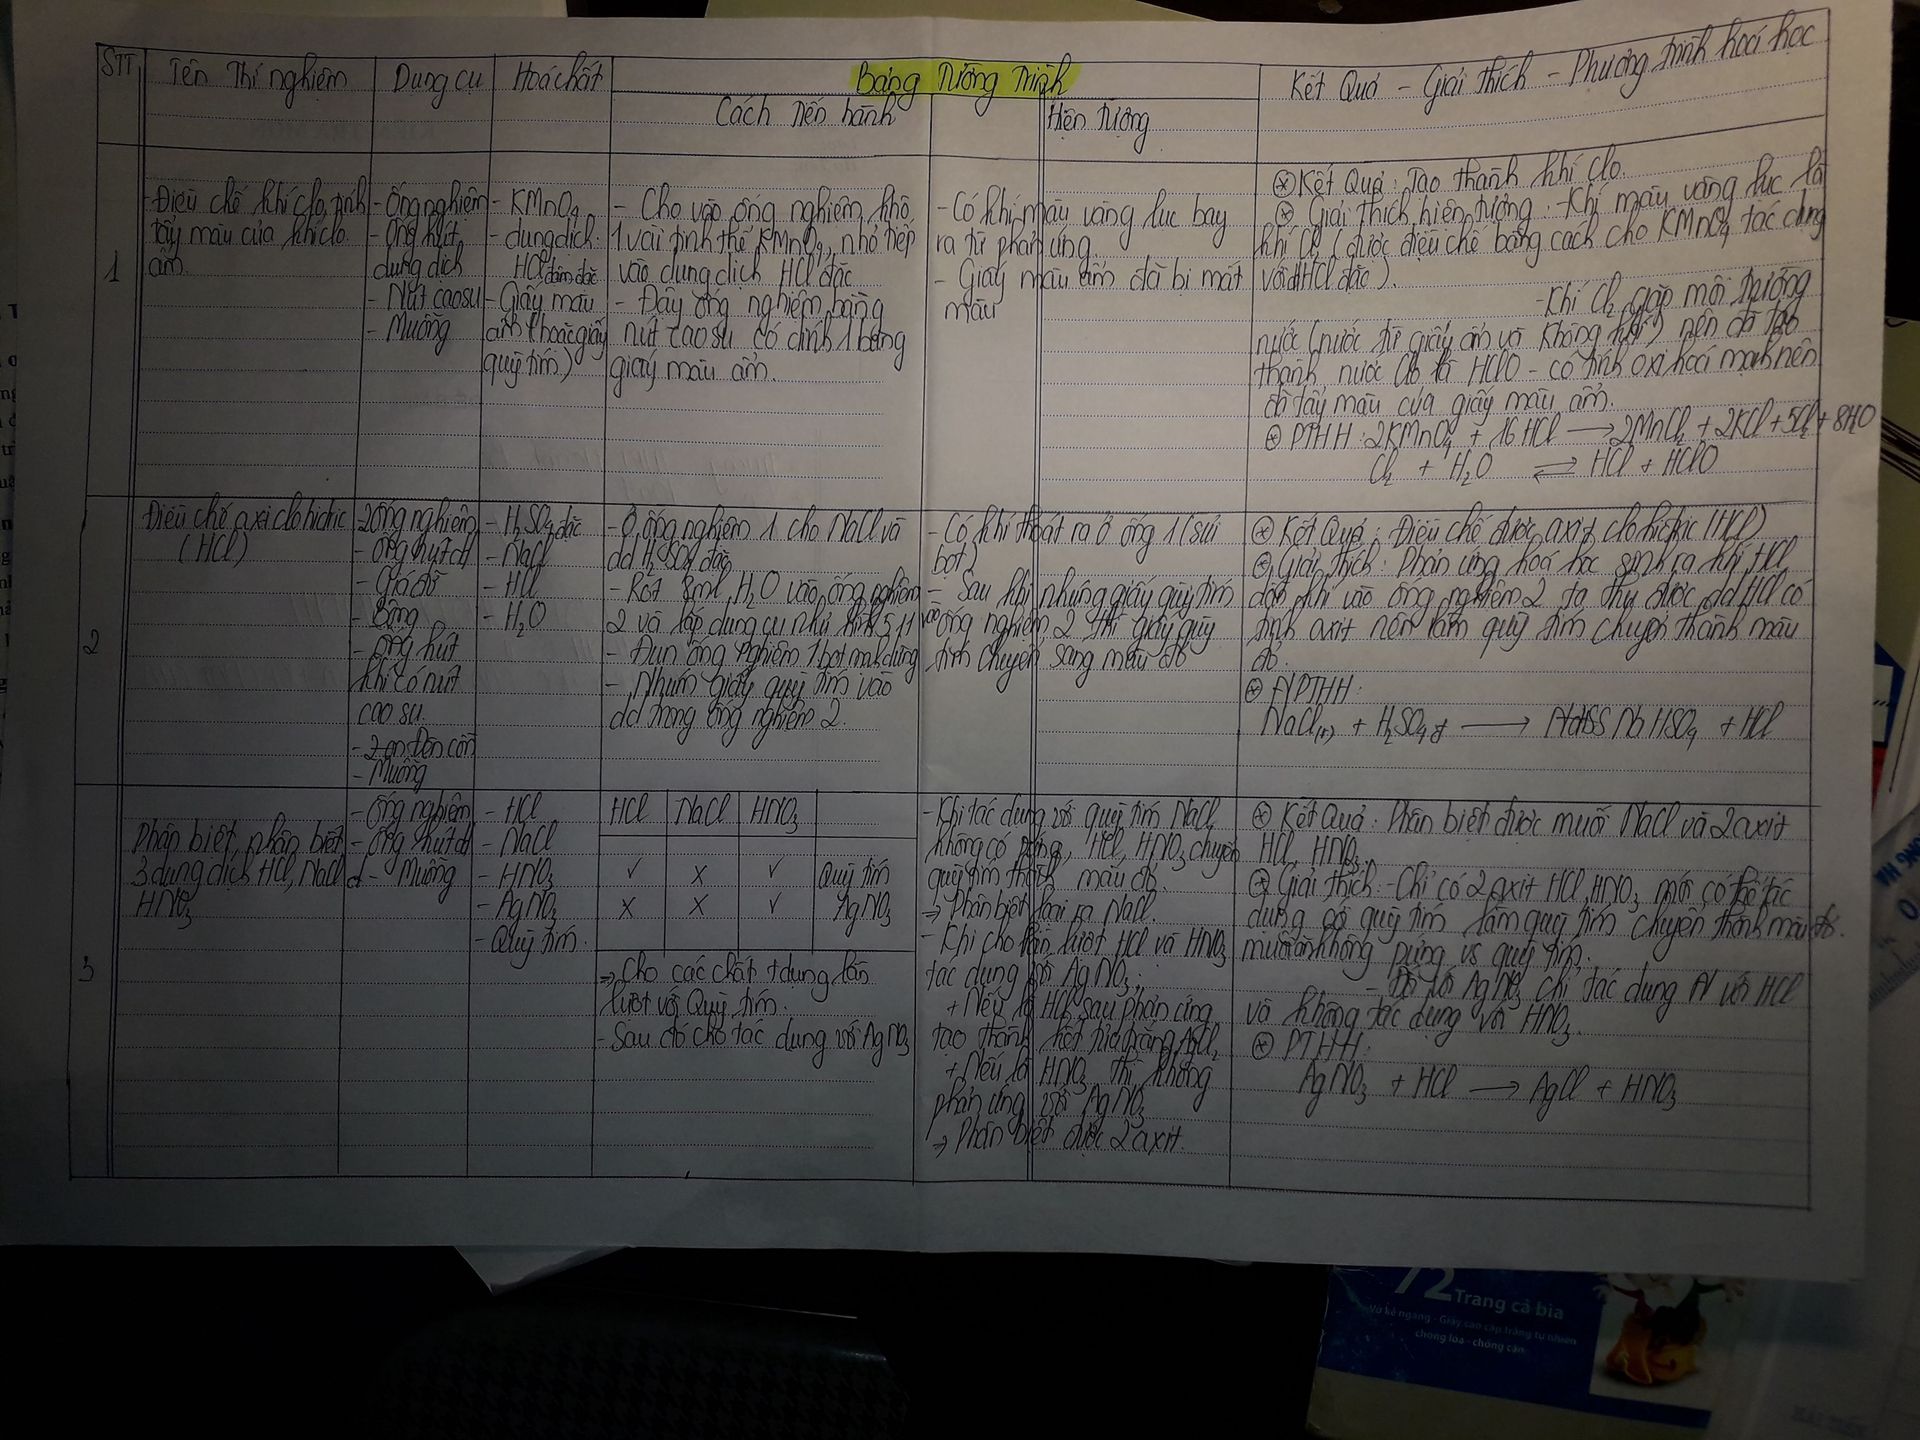 STT
Tên Thí nghiệm
Dụng cụ
Hoá chất
Bảng Tường Trình
Cách tiến hành
Hiện tượng
Kết Quả - Giải thích - Phương trình hoá học
1
- Điều chế khí clo, tính
tẩy màu của khí clo
ẩm.
- Ống nghiệm
- Ống hút
dung dịch
- Nút cao su
- Muỗng
- KMnO4
- dung dịch
HCl đậm đặc
- Giấy màu
ẩm (hoặc giấy
quỳ tím)
- Cho vào ống nghiệm khô
1 vài tinh thể KMnO4, nhỏ tiếp
vào dung dịch HCl đặc
- Đậy ống nghiệm bằng
nút cao su có dính 1 băng
giấy màu ẩm.
- Có khí màu vàng lục bay
ra từ phản ứng.
- Giấy màu ẩm đã bị mất
màu
⊛ Kết Quả: Tạo thành khí clo.
⊛ Giải thích hiện tượng: - Khí màu vàng lục là
khí Cl2 (được điều chế bằng cách cho KMnO4 tác dụng
với dd HCl đặc).
- Khí Cl2 gặp môi trường
nước (nước từ giấy ẩm và không khí) nên đã tạo
thành nước clo là HClO - có tính oxi hoá mạnh nên
đã tẩy màu của giấy màu ẩm.
⊛ PTHH: 2KMnO4 + 16 HCl → 2MnCl2 + 2KCl + 5Cl2 + 8H2O
Cl2 + H2O ⇌ HCl + HClO
2
Điều chế axi clohidric
(HCl)
2 ống nghiệm
- ống hút dd
- Giá đỡ
- Bông
- ống hút
khí có nút
cao su.
- đèn cồn
- Muỗng
- H2SO4 đặc
- NaCl
- HCl
- H2O
- Ở ống nghiệm 1 cho NaCl và
dd H2SO4 đặc
- Rót 8ml H2O vào ống nghiệm
2 và lắp dụng cụ như hình 5.11
- Đun ống nghiệm 1 bọt mạnh dừng
- Nhúm giấy quỳ tím vào
dd trong ống nghiệm 2.
- Có khí thoát ra ở ống 1 (sủi
bọt)
- Sau khi nhúng giấy quỳ tím
vào ống nghiệm 2 thì giấy quỳ
tím chuyển sang màu đỏ
⊛ Kết Quả: Điều chế được axit clohidric (HCl)
⊛ Giải thích: Phản ứng hoá học sinh ra khí HCl,
dẫn khí vào ống nghiệm 2 ta thu được dd HCl có
tính axit nên làm quỳ tím chuyển thành màu
đỏ.
⊛ PTHH:
NaCl(r) + H2SO4 đ → NaHSO4 + HCl
3
Phân biệt, nhận biết
3 dung dịch HCl, NaCl
HNO3
- Ống nghiệm
- ống hút dd
- Muỗng
- HCl
- NaCl
- HNO3
- AgNO3
- Quỳ tím.
HCl NaCl HNO3
✓ x ✓ Quỳ tím
x x ✓ AgNO3
⇒ Cho các chất t dụng lần
lượt với Quỳ tím.
- Sau đó cho tác dụng với AgNO3
- Khi tác dụng với quỳ tím NaCl
không có pứng, HCl, HNO3 chuyển
quỳ tím thành màu đỏ.
⇒ Phân biệt loại ra NaCl.
- Khi cho lần lượt HCl và HNO3
tác dụng với AgNO3:
+ Nếu là HCl sau phản ứng
tạo thành kết tủa trắng AgCl,
+ Nếu là HNO3 thì không
phản ứng với AgNO3
⇒ Phân biệt được 2 axit.
⊛ Kết Quả: Phân biệt được muối NaCl và 2 axit
HCl, HNO3.
⊛ Giải thích: - Chỉ có 2 axit HCl, HNO3 mới có thể tác
dụng có quỳ tím làm quỳ tím chuyển thành màu đỏ.
muối ăn không pứng vs quỳ tím.
- Đối với AgNO3 chỉ tác dụng với HCl
và không tác dụng với HNO3.
⊛ PTHH:
AgNO3 + HCl → AgCl + HNO3
72 Trang cả bìa
Vở kẻ ngang - Giấy cao cấp trắng tự nhiên
chống lóa - chống cận